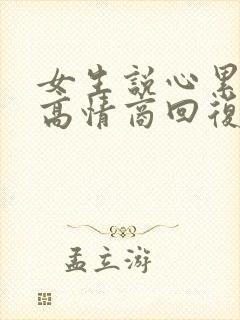 女生說心累
高情商回復
孟立游